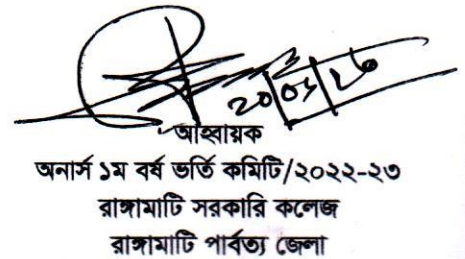 আহ্বায়ক
অনার্স ১ম বর্ষ ভর্তি কমিটি/২০২২-২৩
রাঙ্গামাটি সরকারি কলেজ
রাঙ্গামাটি পার্বত্য জেলা